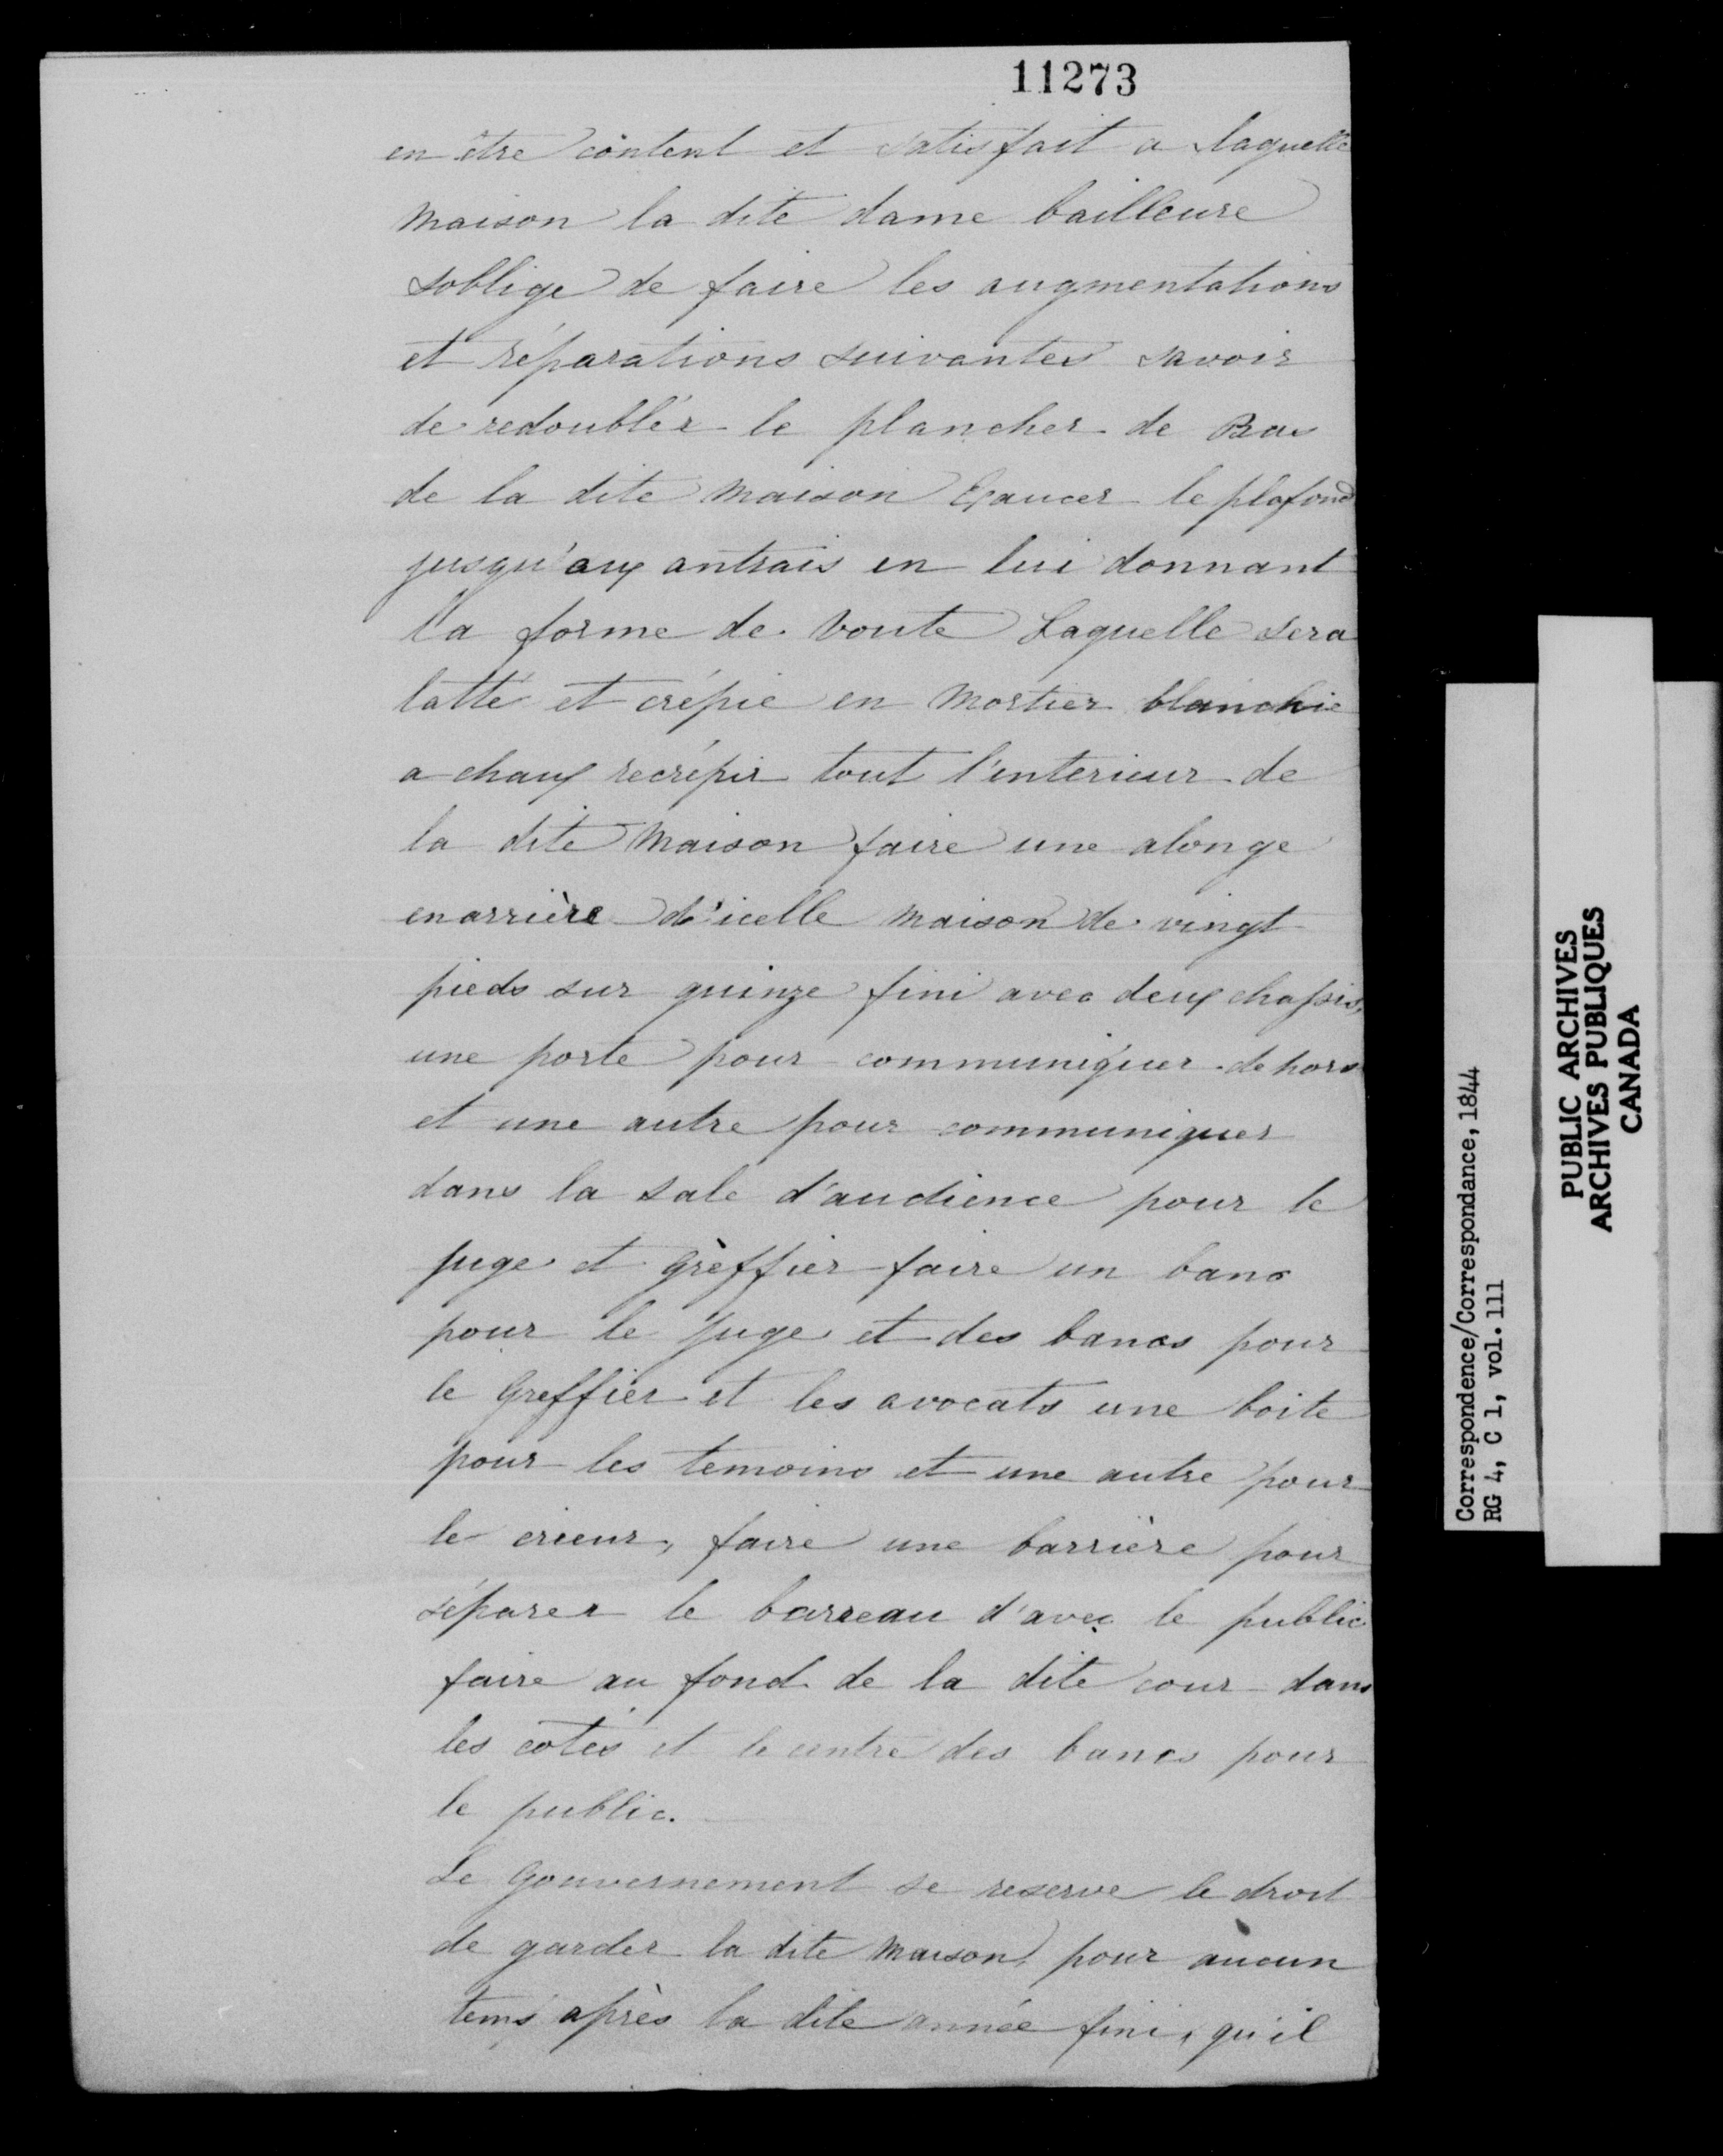 11273
en être content et satisfait a laquelle
maison la dite dame bailleure
soblige de faire les augmentations
et réparations suivantes savoir
de redoublér le plancher de Bas
de la dite maison Exaucer le plafond
jusqu'aux antrais en lui donnant
la forme de voute Laquelle sera
latté et crépie en mortier blanchie
a chaux recrépir tout l'interieur de
la dite maison faire une alonge
en arrière d'icelle maison de vingt
pieds sur quinze fini avec deux chassis,
une porte pour communiquer dehors
et une autre pour communiquer
dans la sale d'audience pour le
juge et grèffier faire un banc
pour le juge et des bancs pour
le Greffier et les avocats une boite
pour les temoins et une autre pour
le crieur, faire une barrière pour
séparer le barreau d'avec le public
faire au fond de la dite cour dans
les cotés et le centre des bancs pour
le public.
Le Gouvernement se reserve le droit
de garder la dite maison pour aucun
tems après la dite année fini, qu'il
Correspondence/Correspondance, 1844
RG 4, C 1, vol. 111
PUBLIC ARCHIVES
ARCHIVES PUBLIQUES
CANADA